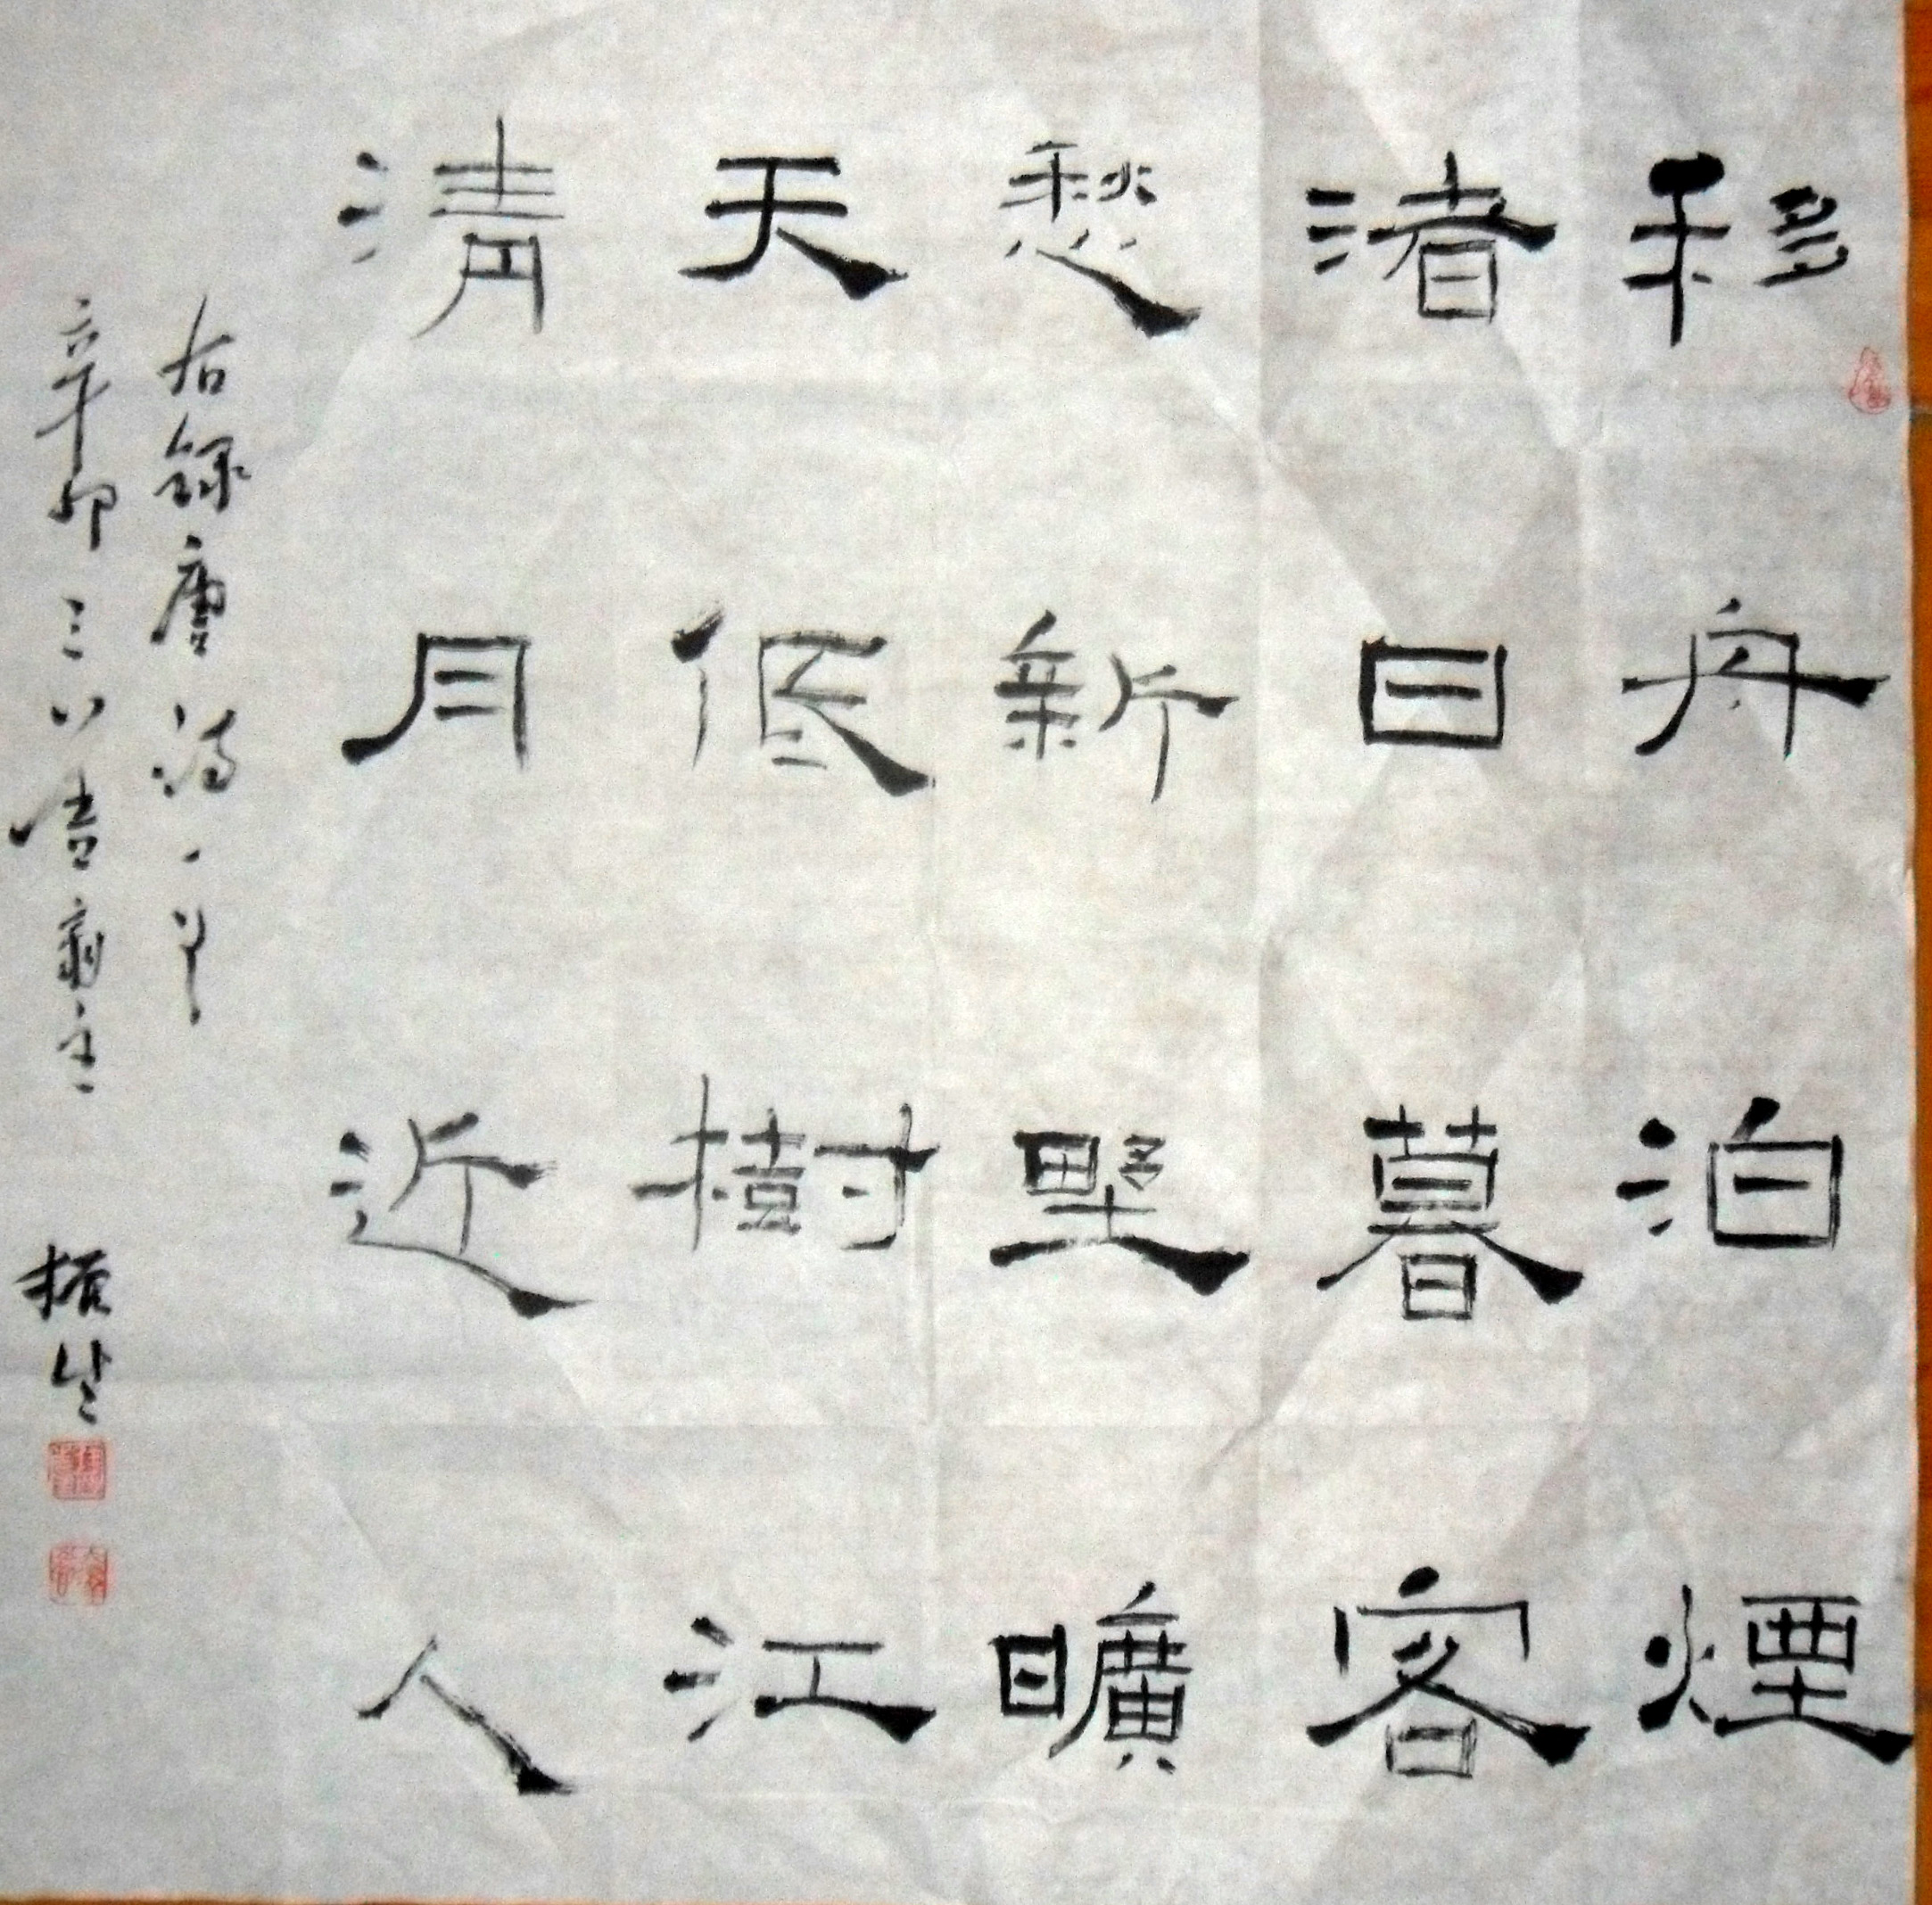 移舟泊煙
渚日暮客
愁新野曠
天低樹江
清月近人
右録唐詩一首
辛卯三八吉齋主
振生